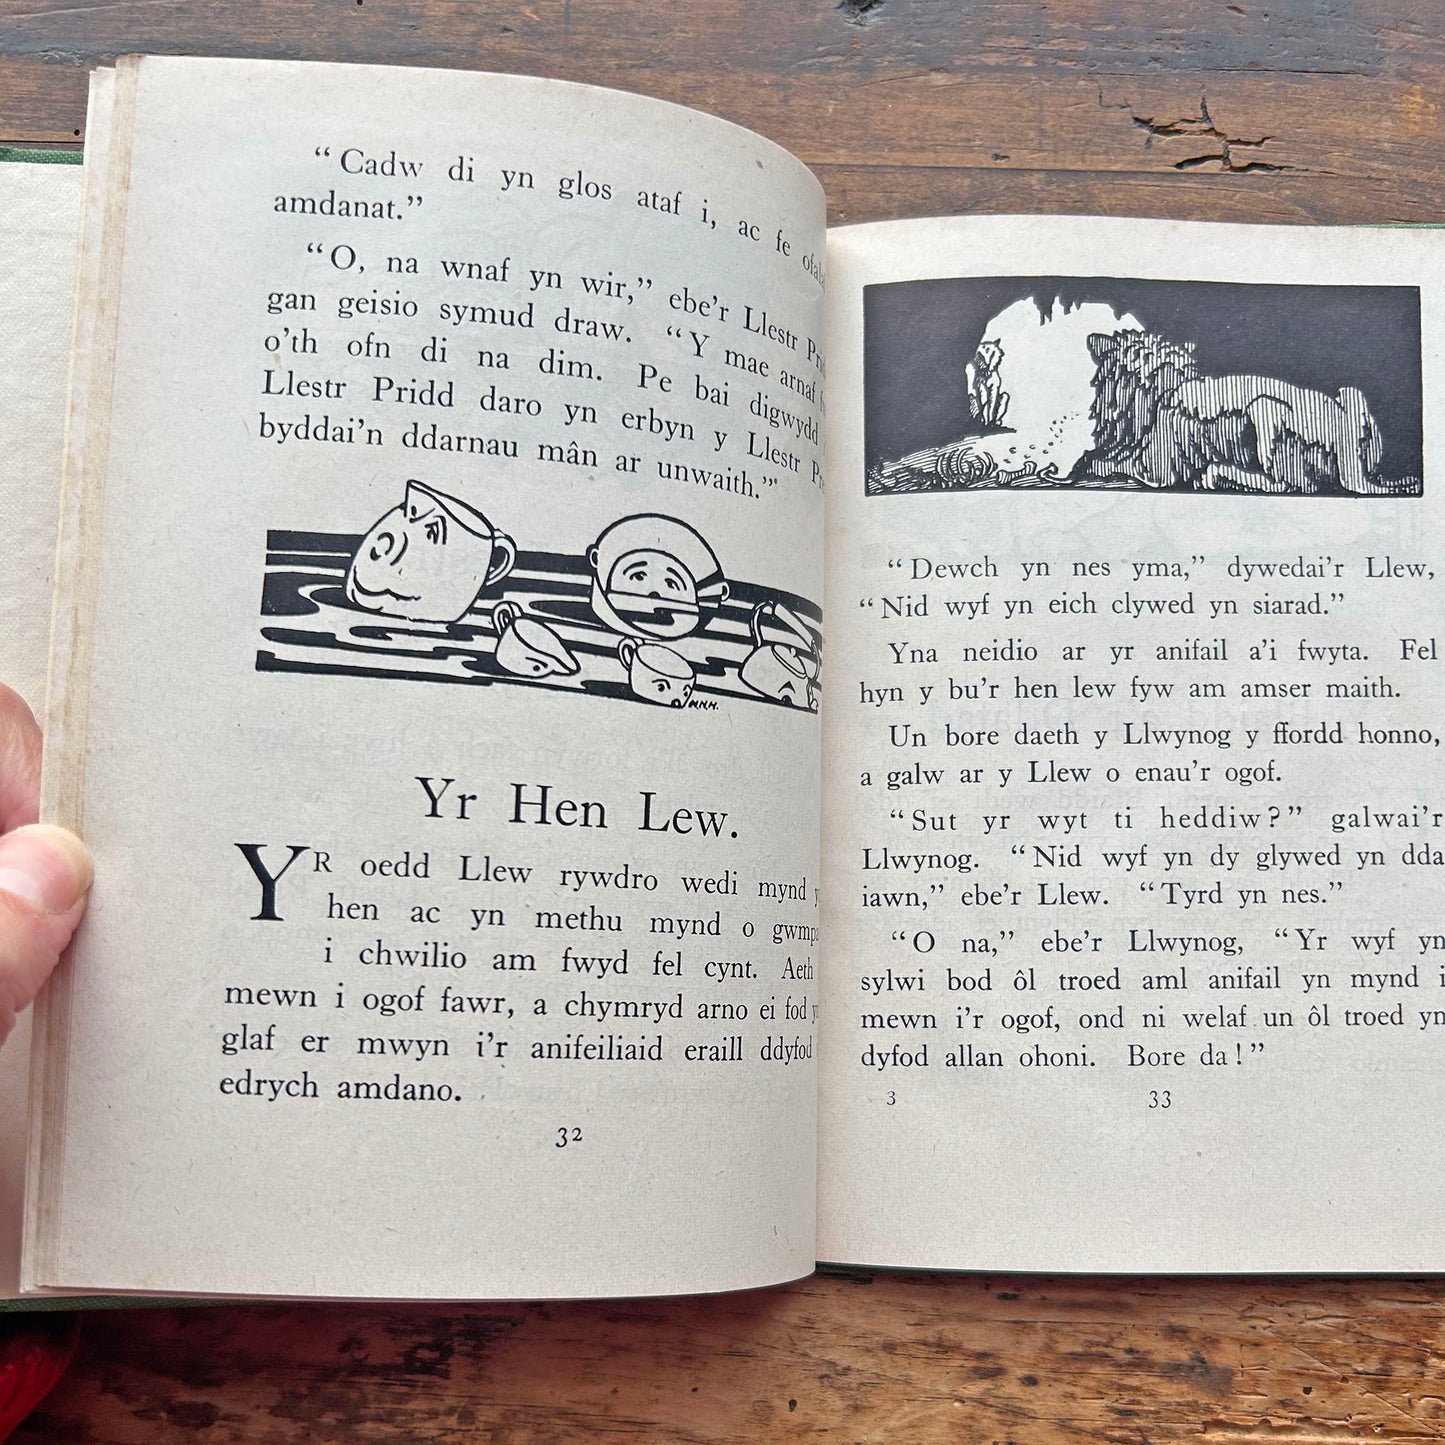 “Cadw di yn glos ataf i, ac fe
amdanat.”
“O, na wnaf yn wir,” ebe’r Llestr
gan geisio symud draw. “Y mae arnaf
o’th ofn di na dim. Pe bai digwydd
Llestr Pridd daro yn erbyn y Llestr
byddai’n ddarnau mân ar unwaith.”
M.N.H.
Yr Hen Lew.
YR oedd Llew rywdro wedi mynd
hen ac yn methu mynd o
i chwilio am fwyd fel cynt. Aeth
mewn i ogof fawr, a chymryd arno ei fod
glaf er mwyn i’r anifeiliaid eraill ddyfod
edrych amdano.
32
“Dewch yn nes yma,” dywedai’r Llew,
“Nid wyf yn eich clywed yn siarad.”
Yna neidio ar yr anifail a’i fwyta. Fel
hyn y bu’r hen lew fyw am amser maith.
Un bore daeth y Llwynog y ffordd honno,
a galw ar y Llew o enau’r ogof.
“Sut yr wyt ti heddiw?” galwai’r
Llwynog. “Nid wyf yn dy glywed yn dda
iawn,” ebe’r Llew. “Tyrd yn nes.”
“O na,” ebe’r Llwynog, “Yr wyf yn
sylwi bod ôl troed aml anifail yn mynd i
mewn i’r ogof, ond ni welaf un ôl troed yn
dyfod allan ohoni. Bore da!”
3 33